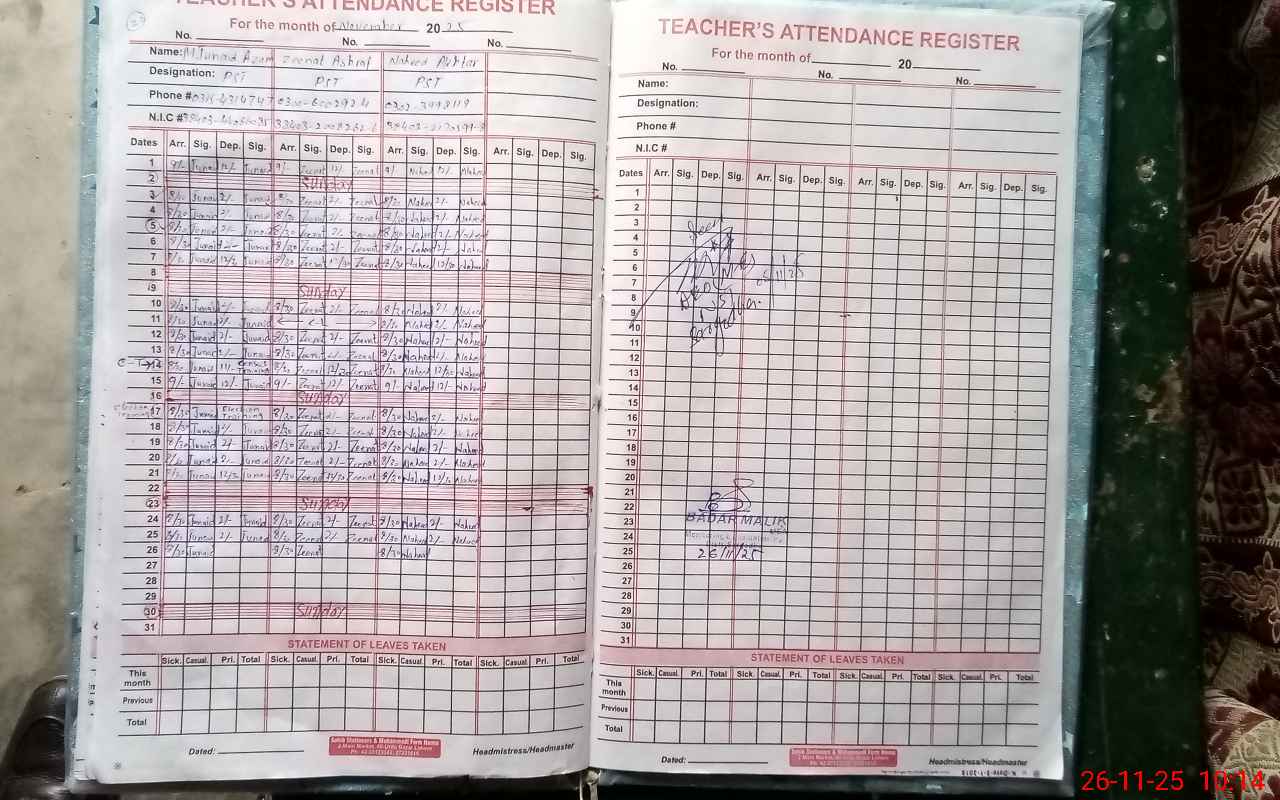 TEACHER'S ATTENDANCE REGISTER
For the month of November 2025
No. No. No.
Name: M.Junaid Azam Zeenat Ashraf Naheed Akhtar
Designation: PST PST PST
Phone #
N.I.C #
Dates Arr. Sig. Dep. Sig. Arr. Sig. Dep. Sig. Arr. Sig. Dep. Sig. Arr. Sig. Dep. Sig.
1 9/- Junaid 12/- Junaid 9/- Zeenat 12/- Zeenat 9/- Naheed 12/- Naheed
2 Sunday
3 8/30 Junaid 2/- Junaid 8/30 Zeenat 2/- Zeenat 8/30 Naheed 2/- Naheed
4 8/30 Junaid 2/- Junaid 8/30 Zeenat 2/- Zeenat 8/30 Naheed 2/- Naheed
5 8/30 Junaid 2/- Junaid 8/30 Zeenat 2/- Zeenat 8/30 Naheed 2/- Naheed
6 8/30 Junaid 2/- Junaid 8/30 Zeenat 2/- Zeenat 8/30 Naheed 2/- Naheed
7 8/30 Junaid 12/30 Junaid 8/30 Zeenat 12/30 Zeenat 8/30 Naheed 12/30 Naheed
8
9 Sunday
10 8/30 Junaid 2/- Junaid 8/30 Zeenat 2/- Zeenat 8/30 Naheed 2/- Naheed
11 8/30 Junaid 2/- Junaid 8/30 Naheed 2/- Naheed
12 8/30 Junaid 2/- Junaid 8/30 Zeenat 2/- Zeenat 8/30 Naheed 2/- Naheed
13 8/30 Junaid 2/- Junaid 8/30 Zeenat 2/- Zeenat 8/30 Naheed 2/- Naheed
C-T→ 14 8/30 Junaid 11/- Census Training 8/30 Zeenat 12/30 Zeenat 8/30 Naheed 12/30 Naheed
15 9/- Junaid 12/- Junaid 9/- Zeenat 12/- Zeenat 9/- Naheed 12/- Naheed
16 Sunday
17 8/30 Junaid Election Training 8/30 Zeenat 2/- Zeenat 8/30 Naheed 2/- Naheed
18 8/30 Junaid 2/- Junaid 8/30 Zeenat 2/- Zeenat 8/30 Naheed 2/- Naheed
19 8/30 Junaid 2/- Junaid 8/30 Zeenat 2/- Zeenat 8/30 Naheed 2/- Naheed
20 8/30 Junaid 2/- Junaid 8/30 Zeenat 2/- Zeenat 8/30 Naheed 2/- Naheed
21 8/30 Junaid 12/30 Junaid 8/30 Zeenat 12/30 Zeenat 8/30 Naheed 12/30 Naheed
22
23 Sunday
24 8/30 Junaid 2/- Junaid 8/30 Zeenat 2/- Zeenat 8/30 Naheed 2/- Naheed
25 8/30 Junaid 2/- Junaid 8/30 Zeenat 2/- Zeenat 8/30 Naheed 2/- Naheed
26 8/30 Junaid 8/30 Zeenat 8/30 Naheed
27
28
29
30 Sunday
31
STATEMENT OF LEAVES TAKEN
Sick. Casual. Pri. Total Sick. Casual. Pri. Total Sick. Casual. Pri. Total Sick. Casual. Pri. Total
This month
Previous
Total
Dated: Headmistress/Headmaster
TEACHER'S ATTENDANCE REGISTER
For the month of 20
No. No. No.
Name:
Designation:
Phone #
N.I.C #
Dates Arr. Sig. Dep. Sig. Arr. Sig. Dep. Sig. Arr. Sig. Dep. Sig. Arr. Sig. Dep. Sig.
1
2
3
4
5
6
7
8
9
10
11
12
13
14
15
16
17
18
19
20
21
22
23
24
25
26
27
28
29
30
31
Seen
BADAR MALIK
26/11/25
STATEMENT OF LEAVES TAKEN
Sick. Casual. Pri. Total Sick. Casual. Pri. Total Sick. Casual. Pri. Total Sick. Casual. Pri. Total
This month
Previous
Total
Dated: Headmistress/Headmaster
26-11-25 10:14